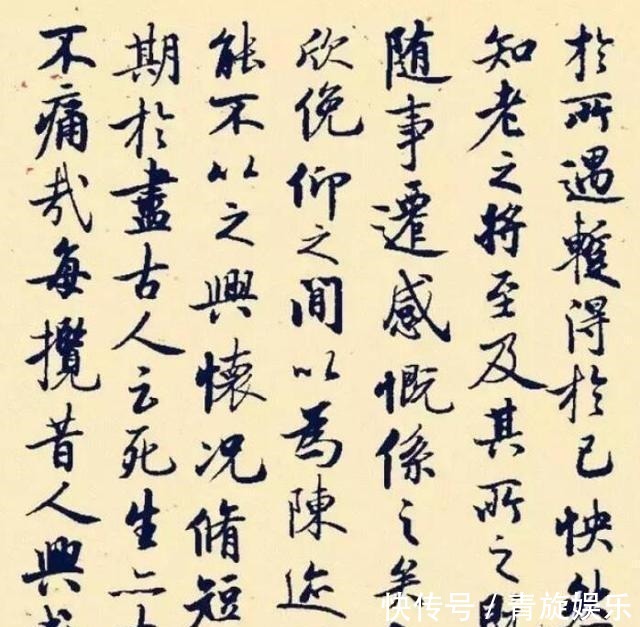 於所遇蹔得於己快
知老之將至及其所之
随事遷感慨係之矣
欣俛仰之間以為陳迹
能不以之興懷况脩短
期於盡古人云死生亦
不痛哉每攬昔人興
快传号/青旋娱乐